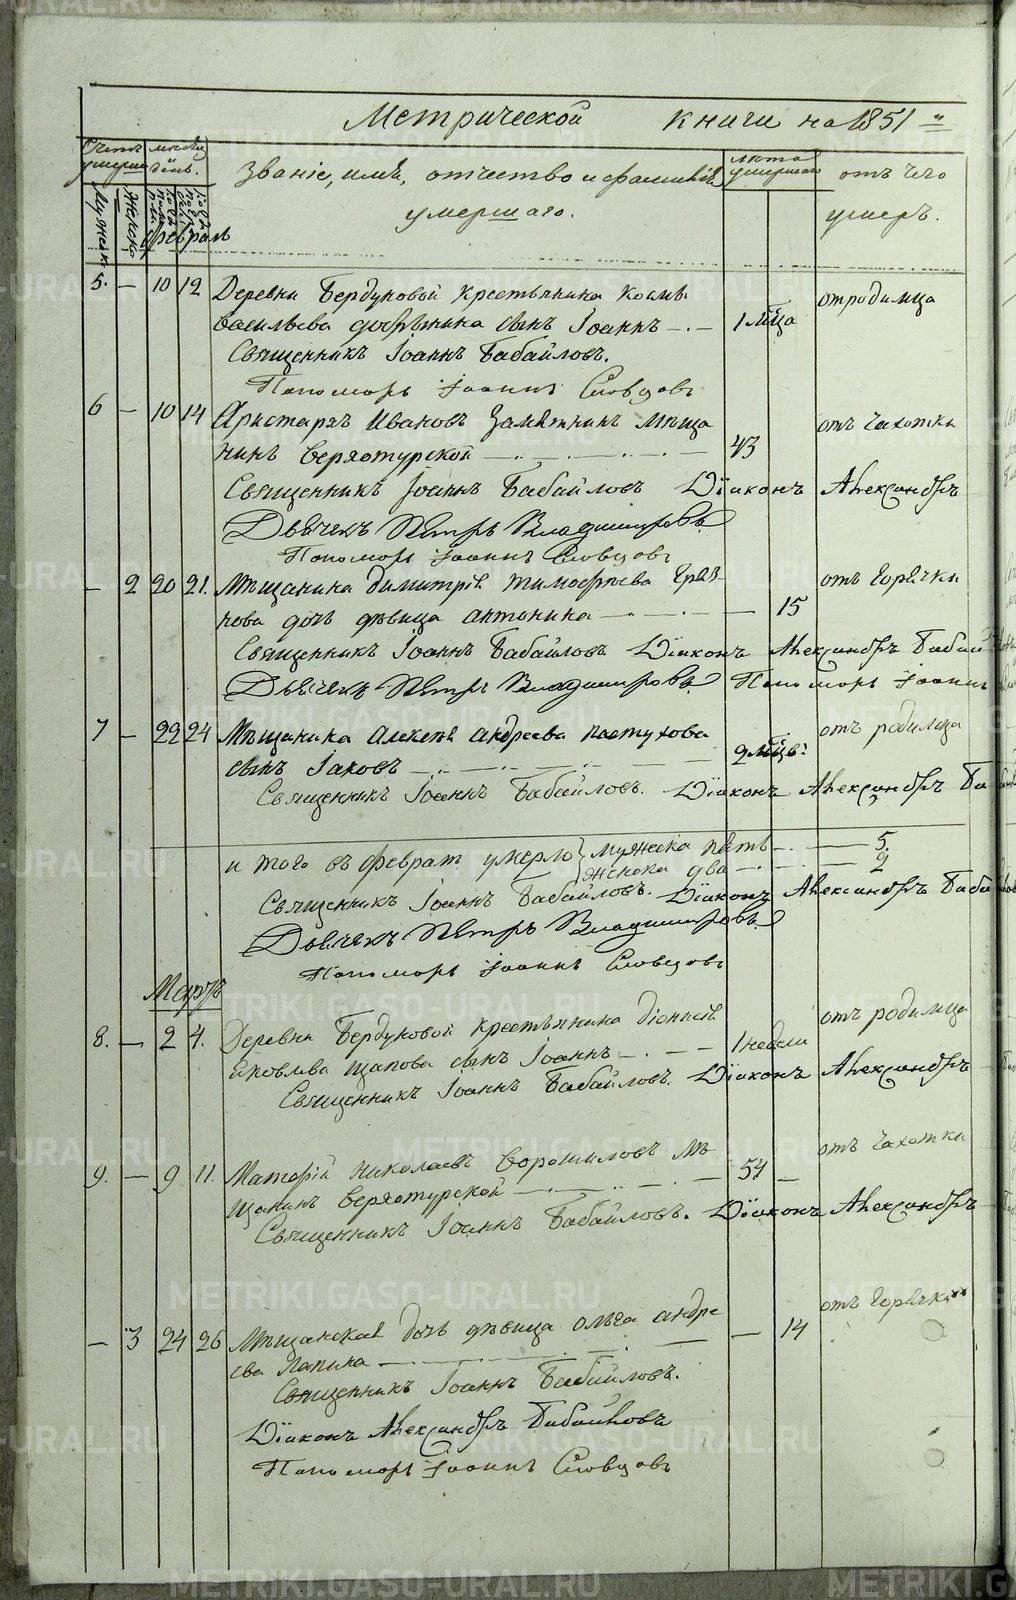 Метрической книги на 1851
Счетъ умершихъ
Месяцъ и день.
Званіе, имя, отчество и фамилія умершаго.
Лета умершаго
отъ чего умеръ.
Мужеск
Женска
Февраль
5. — 10 12 Деревни Бердуковой крестьянина Космы 1 м-ца отродимца
Васильева сынъ Іоаннъ
Священникъ Іоаннъ Бабайловъ.
Пономорь Іоаннъ Словцовъ
6 — 10 14 Аристархъ Ивановъ Замятнинъ меща 43 отъ чахотки
нинъ верхотурской
Священникъ Іоаннъ Бабайловъ Діаконъ Александръ
Дьячекъ Петръ Владимировъ
Пономорь Іоаннъ Словцовъ
— 2 20 21. Мѣщанина Димитрія Тимофѣева Гряз- — 15 отъ горячки
нова дочь дѣвица Антонина
Священникъ Іоаннъ Бабайловъ Діаконъ Александръ Бабай
Дьячекъ Петръ Владимировъ Пономорь Іоаннъ
7 — 22 24 Мѣщанина Алексѣя Андреева Пастухова 2 м-цвъ отъ родимца
сынъ Іаковъ
Священникъ Іоаннъ Бабайловъ. Діаконъ Александръ Ба
и того въ феврал. умерло мужеска пять 5.
женска два 2
Священникъ Іоаннъ Бабайловъ. Діаконъ Александръ Баба
Дьячекъ Петръ Владимировъ
Пономорь Іоаннъ Словцовъ
Мартъ
8. — 2 4. Деревни Бердуковой крестьянина Діонисія 1 недели отъ родимца
Яковлева Щапова сынъ Іоаннъ
Священникъ Іоаннъ Бабайловъ. Діаконъ Александръ
9. — 9 11. Николаевъ Ворошиловъ мѣ 54 — отъ чахотки
щанинъ верхотурской
Священникъ Іоаннъ Бабайловъ. Діаконъ Александръ
— 3 24 26 Мѣщанская дочь дѣвица Ольга Андре — 14 отъ горячки
ева Лапина
Священникъ Іоаннъ Бабайловъ.
Діаконъ Александръ Бабайловъ
Пономорь Іоаннъ Словцовъ
METRIKI.GASO-URAL.RU